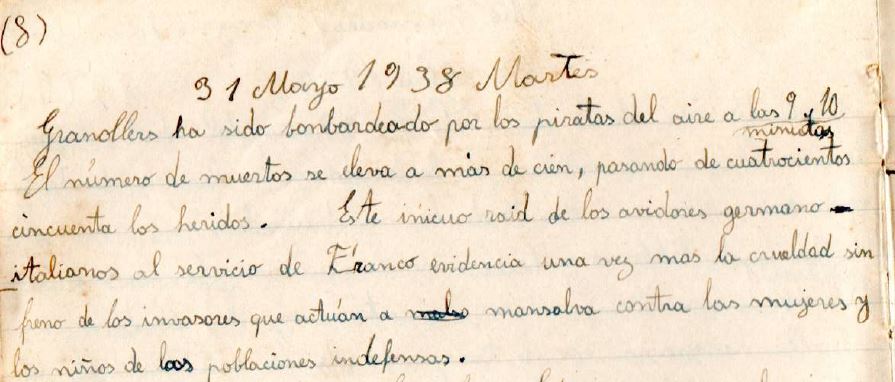 (8)
31 Mayo 1938 Martes
Granollers ha sido bonbardeado por los piratas del aire a las 9 y 10
minutos
El número de muertos se eleva a más de cien, pasando de cuatrocientos
cincuenta los heridos. Este inicuo raid de los avidores germano-
italianos al servicio de Franco evidencia una vez mas la crueldad sin
freno de los invasores que actúan a mansalva contra las mujeres y
los niños de las poblaciones indefensas.